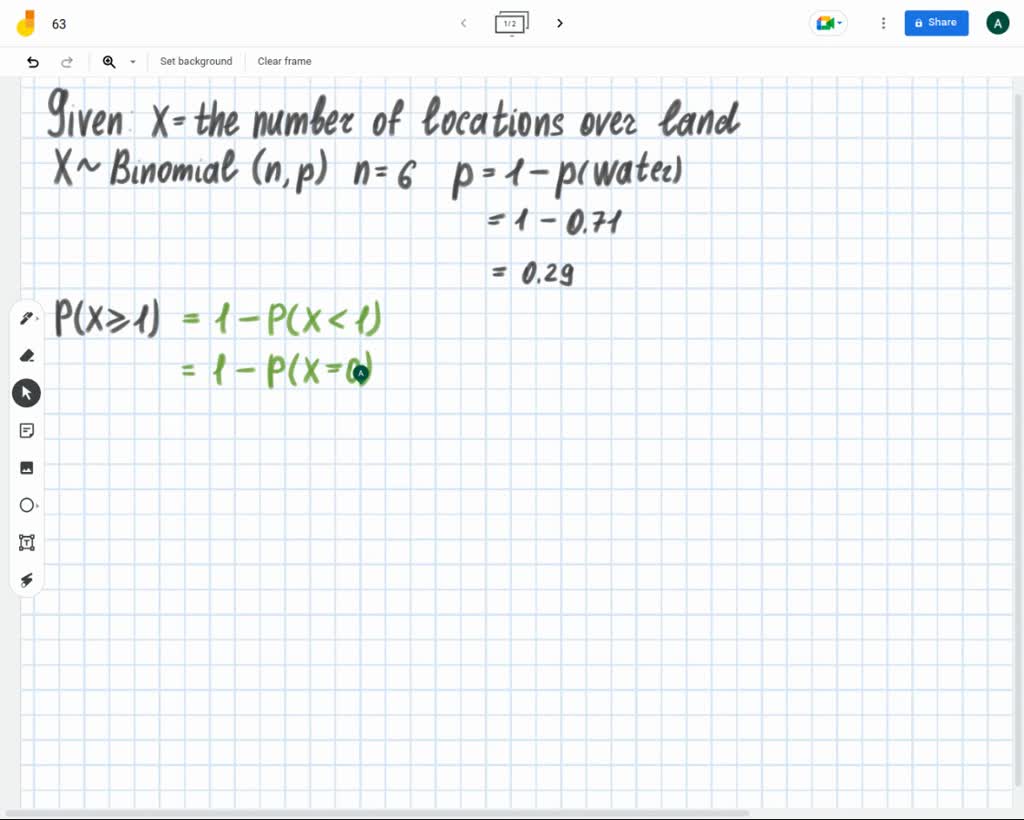 63
1/2
Share
A
Set background
Clear frame
Given: X = the number of locations over land
X ~ Binomial (n, p) n = 6 p = 1 - p(water)
= 1 - 0.71
= 0.29
P(X ≥ 1) = 1 - P(X < 1)
= 1 - P(X = 0)
A
T